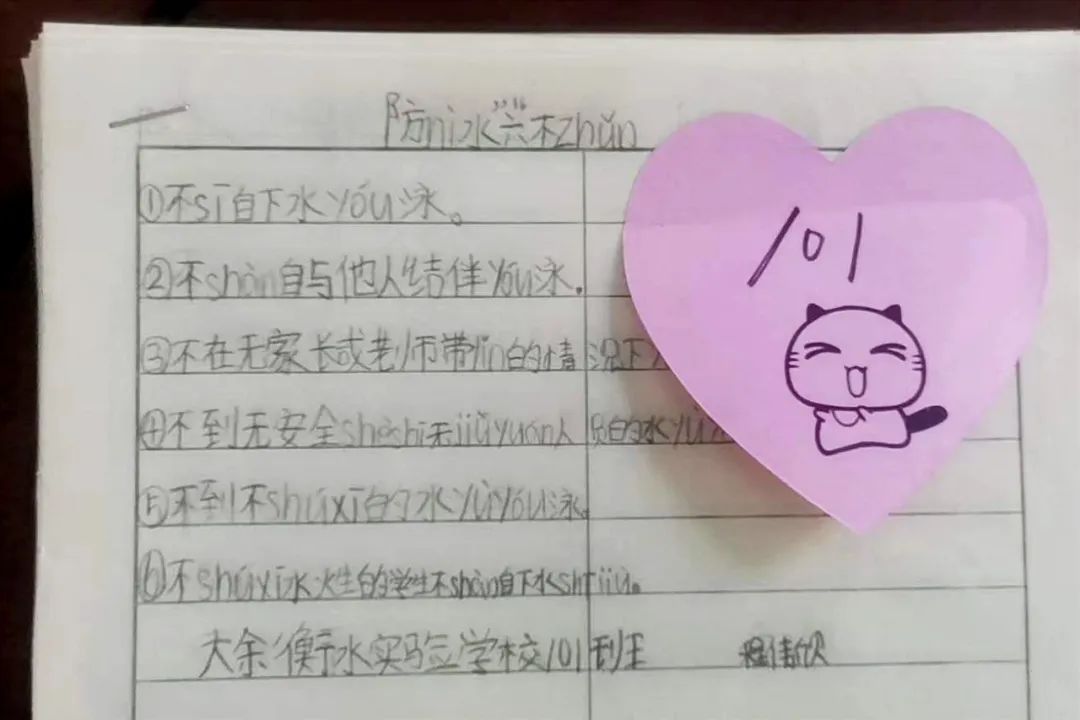 防nì水六不zhǔn
①不sī自下水yóu泳。
②不shàn自与他人结伴yóu泳。
③不在无家长或老师带lǐn的情况下
④不到无安全shèshī无jiùyuán人员的水yù
⑤不到不shúxī的水yùyóu泳。
⑥不shúxī水性的学生不shàn自下水shījiù。
大余衡水实验学校101班
101